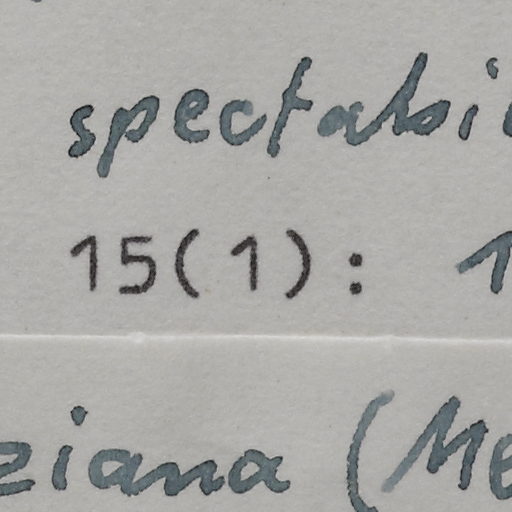 spectabi
15(1): 1
ziana (Me